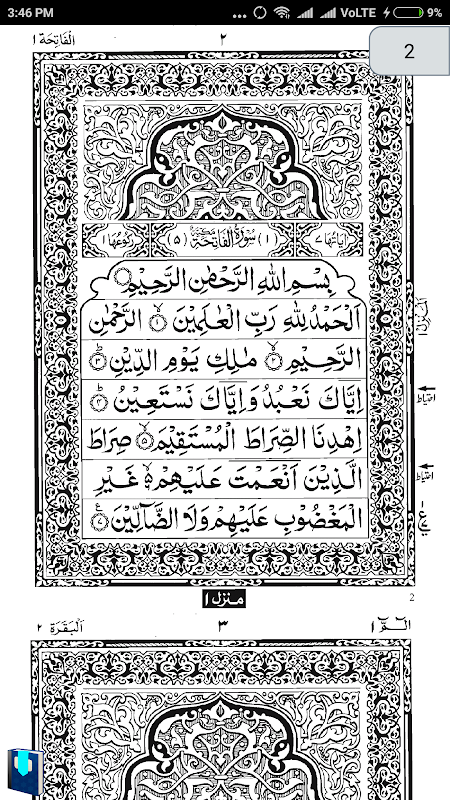 3:46 PM ... VoLTE 9%
2
الْفَاتِحَة ١ ٢
اٰيَاتُهَا ٧ (١) سُوْرَةُ الْفَاتِحَةِ مَكِّيَّةٌ (٥) رُكُوْعُهَا ١
بِسْمِ اللّٰهِ الرَّحْمٰنِ الرَّحِيْمِ
اَلْحَمْدُ لِلّٰهِ رَبِّ الْعٰلَمِيْنَ ۙ﴿١﴾ الرَّحْمٰنِ
الرَّحِيْمِ ۙ﴿٢﴾ مٰلِكِ يَوْمِ الدِّيْنِ ﴿٣﴾
اِيَّاكَ نَعْبُدُ وَاِيَّاكَ نَسْتَعِيْنُ ﴿٤﴾
اِهْدِنَا الصِّرَاطَ الْمُسْتَقِيْمَ ۙ﴿٥﴾ صِرَاطَ
الَّذِيْنَ اَنْعَمْتَ عَلَيْهِمْ ۙ﴿٦﴾ غَيْرِ
الْمَغْضُوْبِ عَلَيْهِمْ وَلَا الضَّآلِّيْنَ ﴿٧﴾
اَلْمَنْزِلُ ١
احتیاط
احتیاط
منزل ١
2
اَلْبَقَرَة ٢ ٣ الٓمّٓ ١